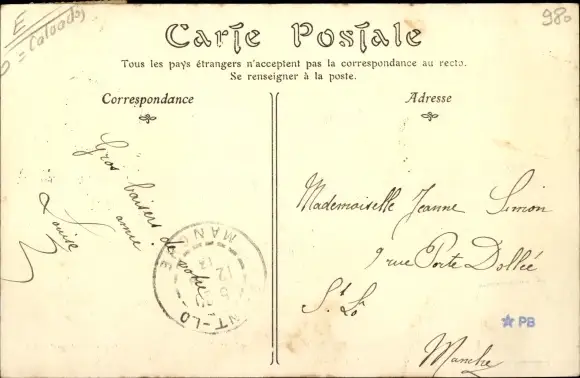 E
= Calvados)
980
Carte Postale
Tous les pays étrangers n'acceptent pas la correspondance au recto.
Se renseigner à la poste.
Correspondance
Adresse
Gros baisers de votre
amie
Louise
Mademoiselle Jeanne Simon
9 rue Porte Dollée
St Lo
Manche
NT-LO
MANCHE
PB